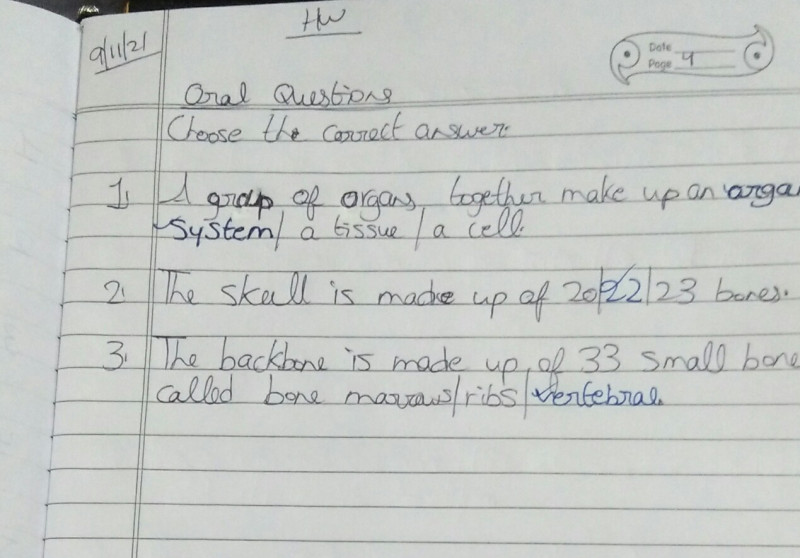 HW
9/11/21
Date
Page 4
Oral Questions
Choose the correct answer.
1. A group of organs, together make up an orga
system/ a tissue / a cell.
2. The skull is made up of 20/22/23 bones.
3. The backbone is made up of 33 small bone
called bone marrows/ribs/vertebral.